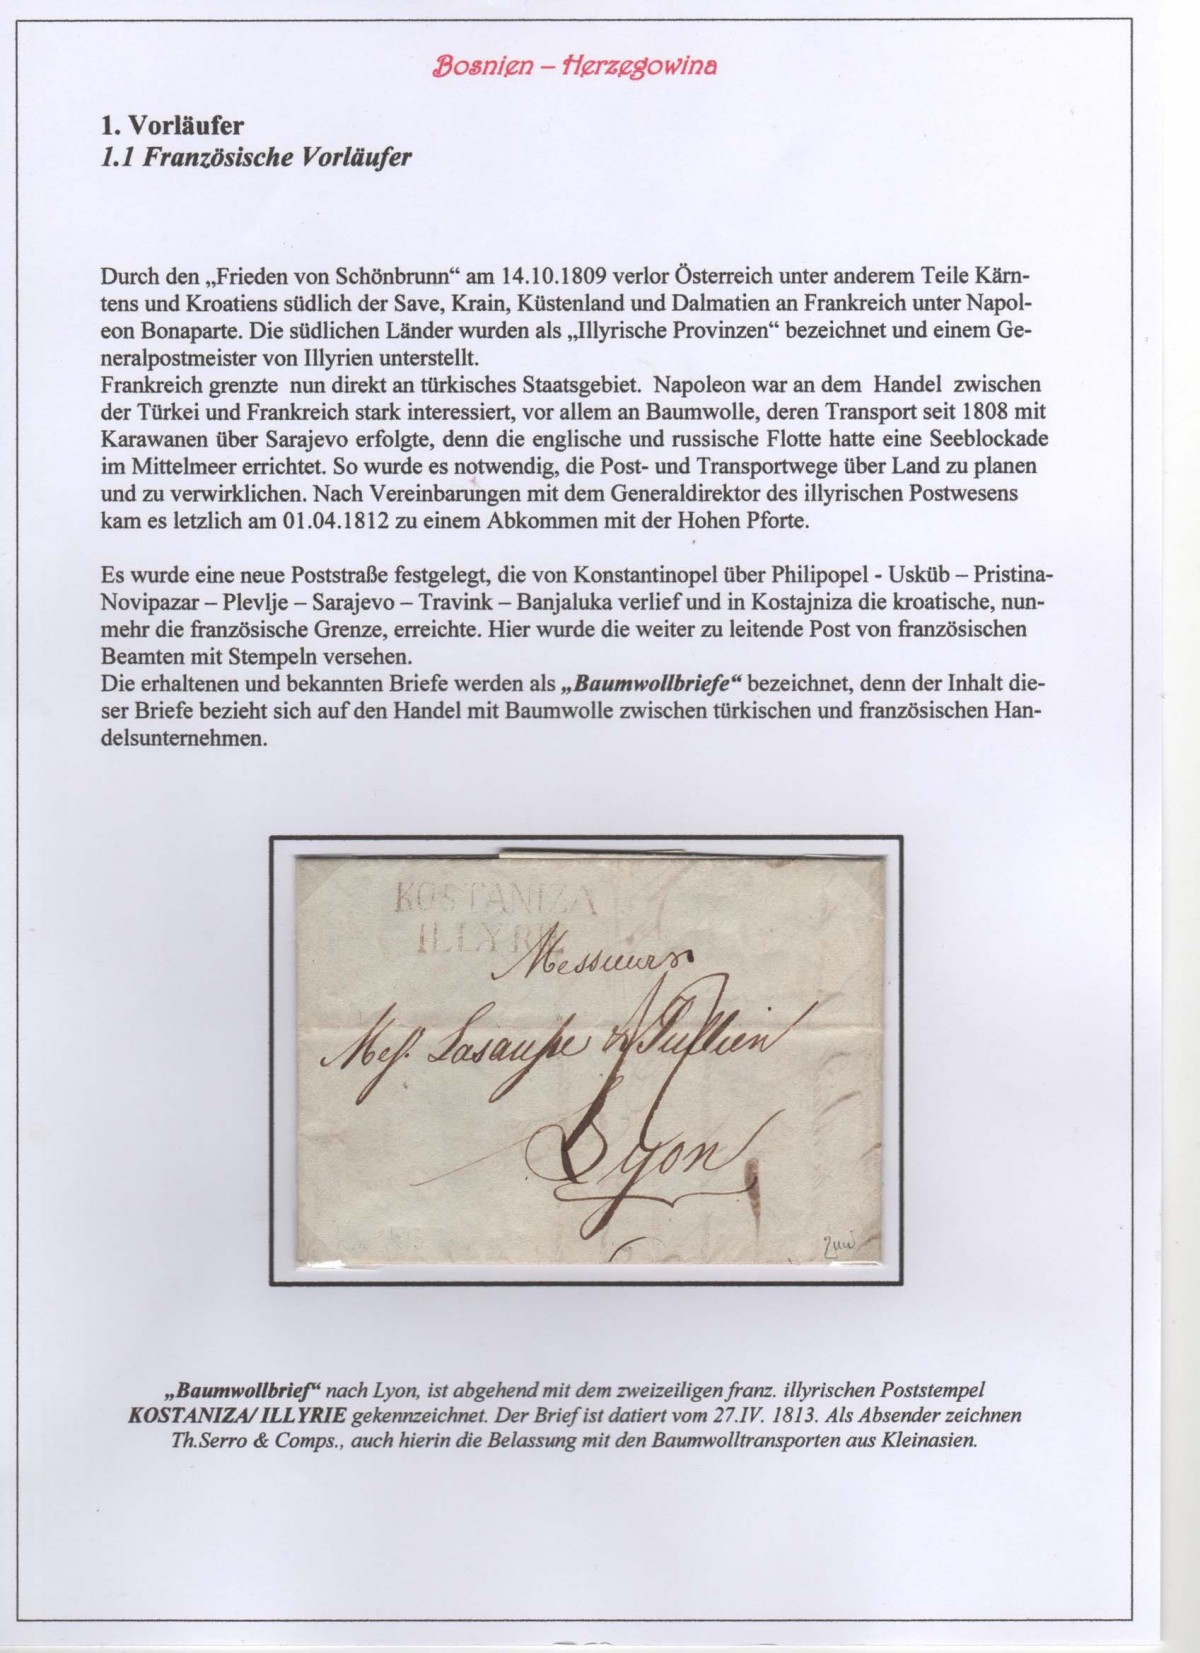 Bosnien – Herzegowina
1. Vorläufer
1.1 Französische Vorläufer
Durch den „Frieden von Schönbrunn“ am 14.10.1809 verlor Österreich unter anderem Teile Kärn-
tens und Kroatiens südlich der Save, Krain, Küstenland und Dalmatien an Frankreich unter Napol-
eon Bonaparte. Die südlichen Länder wurden als „Illyrische Provinzen“ bezeichnet und einem Ge-
neralpostmeister von Illyrien unterstellt.
Frankreich grenzte nun direkt an türkisches Staatsgebiet. Napoleon war an dem Handel zwischen
der Türkei und Frankreich stark interessiert, vor allem an Baumwolle, deren Transport seit 1808 mit
Karawanen über Sarajevo erfolgte, denn die englische und russische Flotte hatte eine Seeblockade
im Mittelmeer errichtet. So wurde es notwendig, die Post- und Transportwege über Land zu planen
und zu verwirklichen. Nach Vereinbarungen mit dem Generaldirektor des illyrischen Postwesens
kam es letzlich am 01.04.1812 zu einem Abkommen mit der Hohen Pforte.
Es wurde eine neue Poststraße festgelegt, die von Konstantinopel über Philipopel - Usküb – Pristina-
Novipazar – Plevlje – Sarajevo – Travink – Banjaluka verlief und in Kostajniza die kroatische, nun-
mehr die französische Grenze, erreichte. Hier wurde die weiter zu leitende Post von französischen
Beamten mit Stempeln versehen.
Die erhaltenen und bekannten Briefe werden als „Baumwollbriefe“ bezeichnet, denn der Inhalt die-
ser Briefe bezieht sich auf den Handel mit Baumwolle zwischen türkischen und französischen Han-
delsunternehmen.
KOSTANIZA
ILLYRIE
Messieurs
Mess. & Jullien
Lyon
„Baumwollbrief“ nach Lyon, ist abgehend mit dem zweizeiligen franz. illyrischen Poststempel
KOSTANIZA/ ILLYRIE gekennzeichnet. Der Brief ist datiert vom 27.IV. 1813. Als Absender zeichnen
Th.Serro & Comps., auch hierin die Belassung mit den Baumwolltransporten aus Kleinasien.